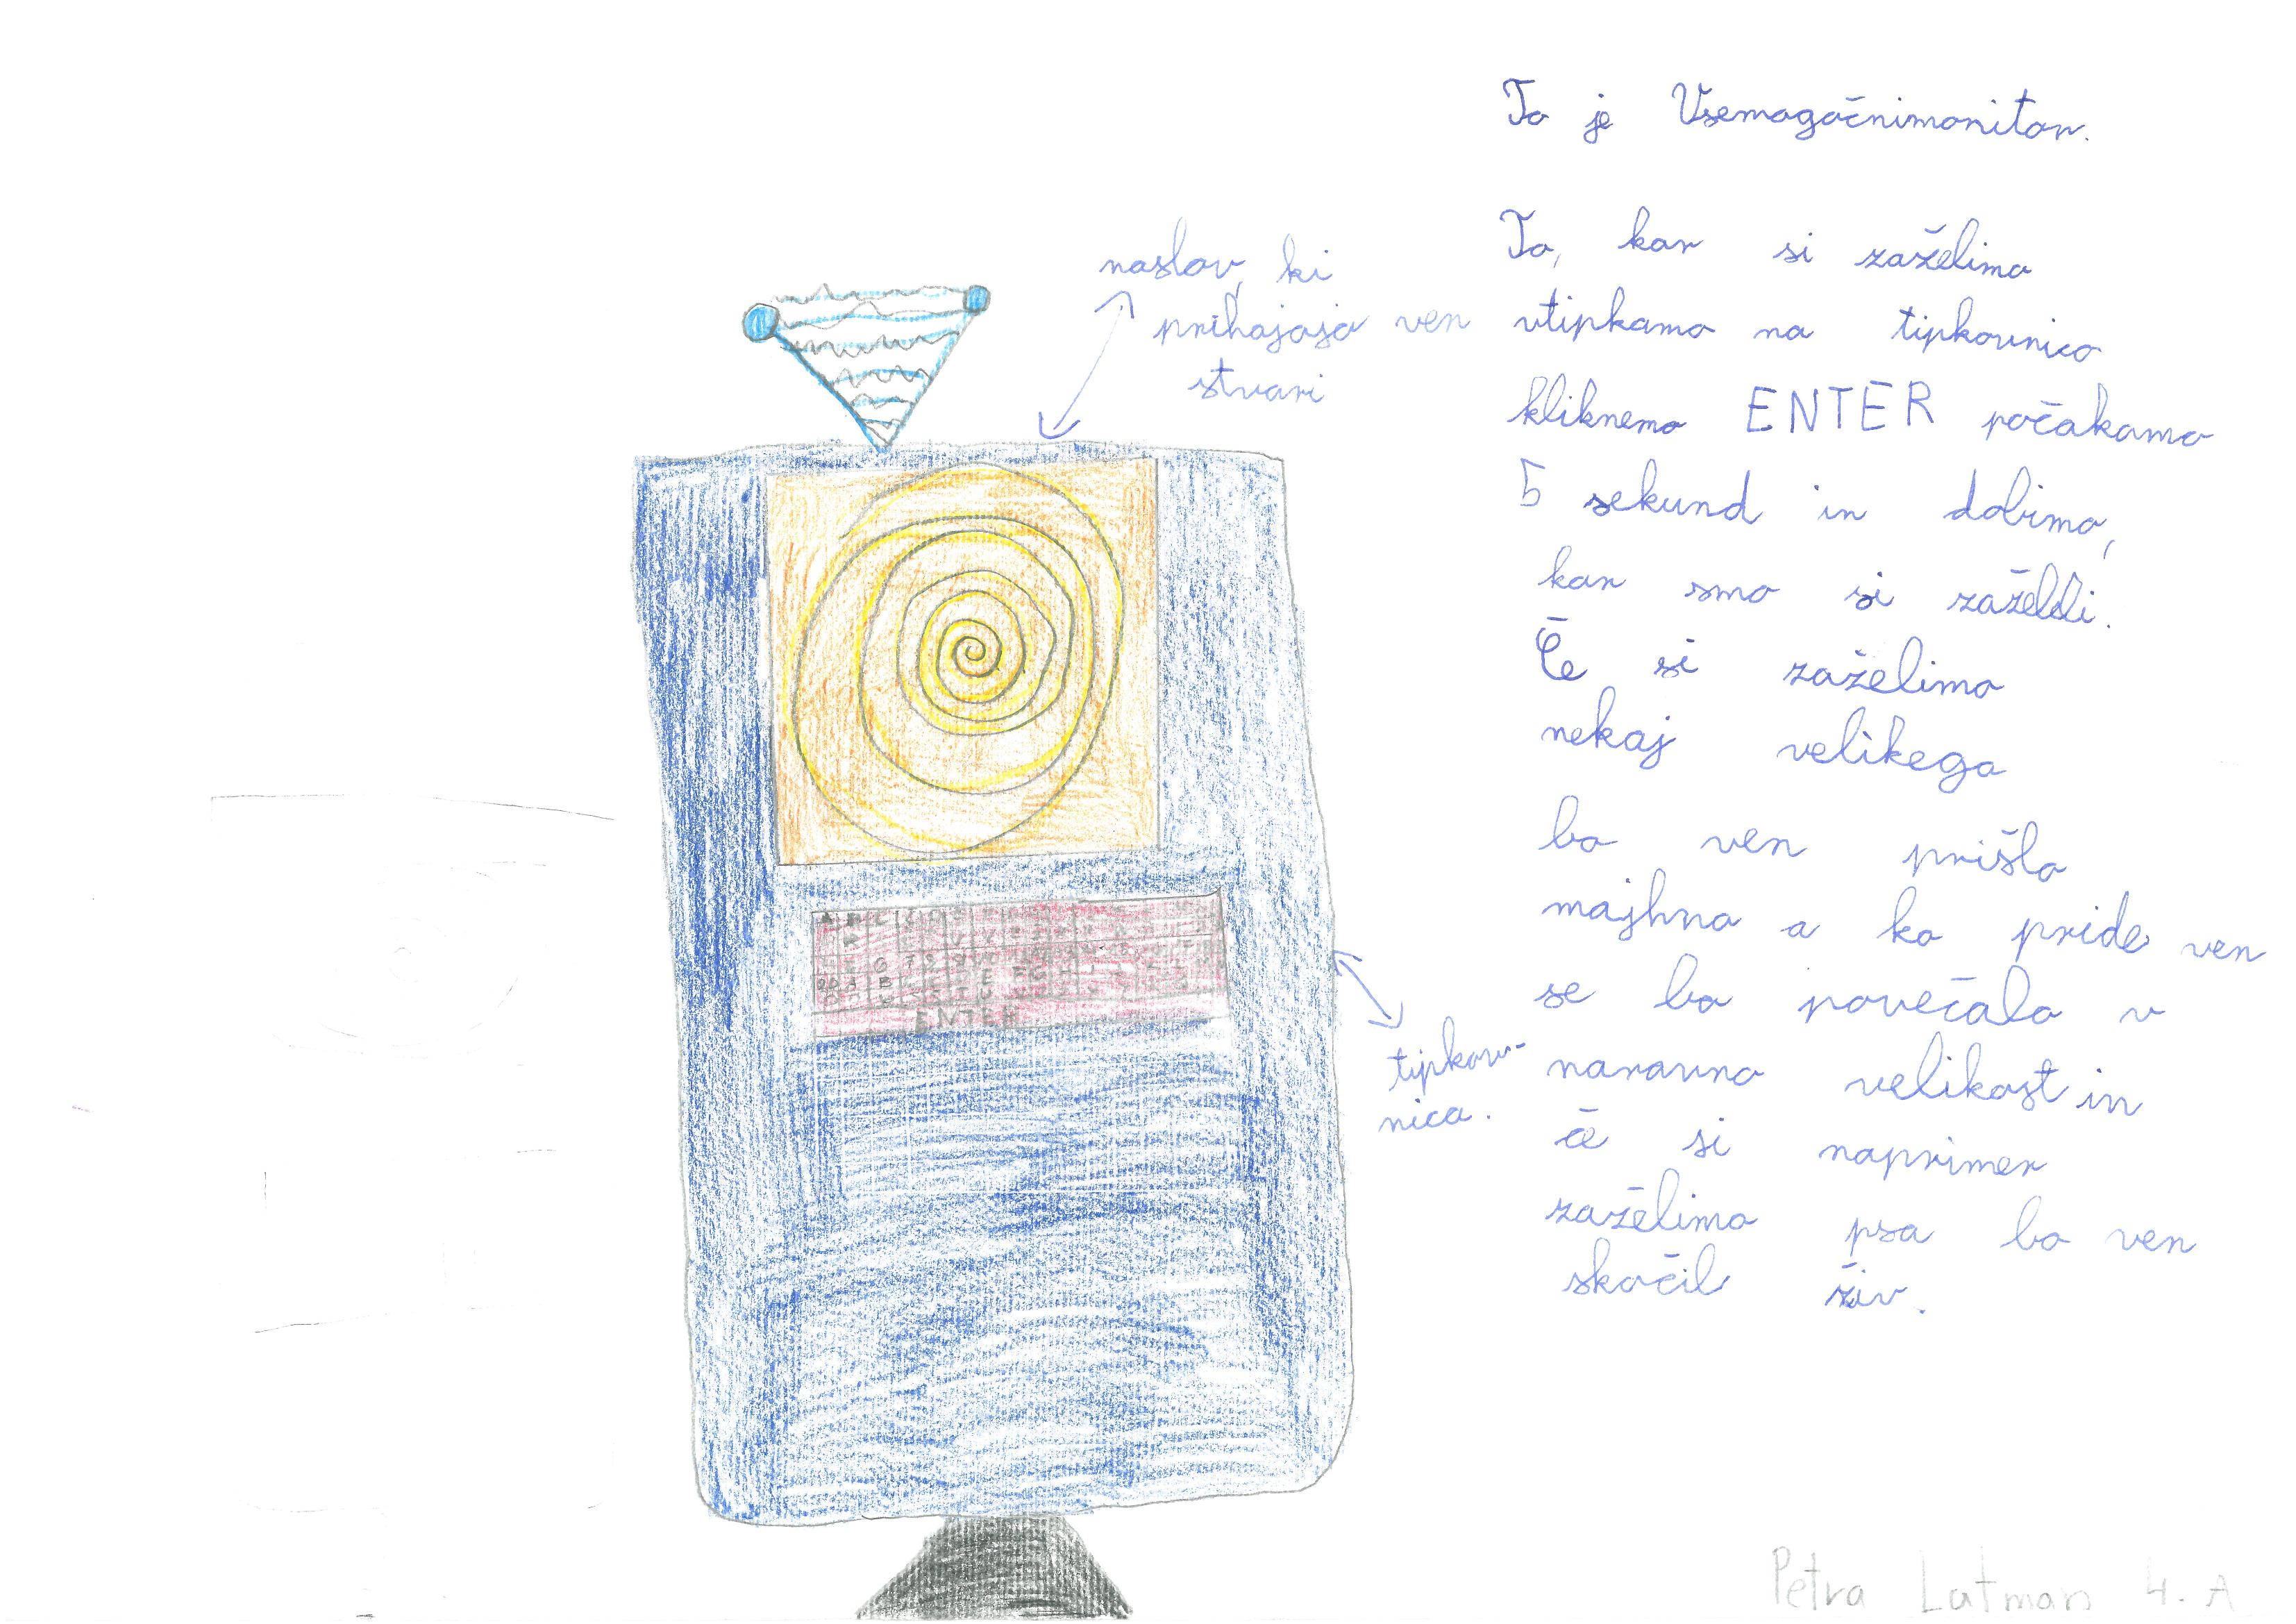 To je Vsemogočnimonitor.
To, kar si zaželimo
vtipkamo na tipkovnico
kliknemo ENTER počakamo
5 sekund in dobimo,
kar smo si zaželeli.
Če si zaželimo
nekaj velikega
bo ven prišlo
majhno a ko pride ven
se bo povečalo v
naravno velikost in
če si naprimer
zaželimo psa bo ven
skočil živ.
naslov, ki
prihajajo ven
stvari
tipkov-
nica.
ENTER
Petra Latman 4. A